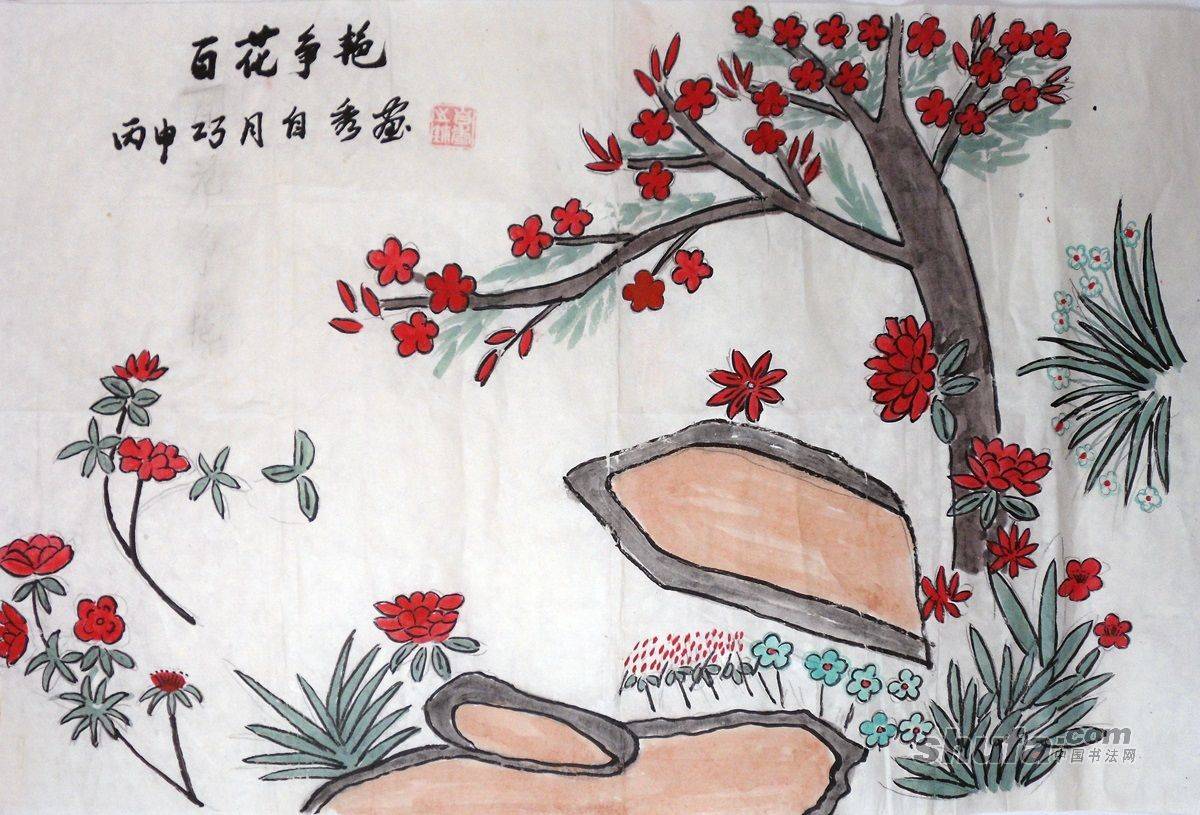 百花争艳
丙申巧月自秀画
shufa.com
中国书法网